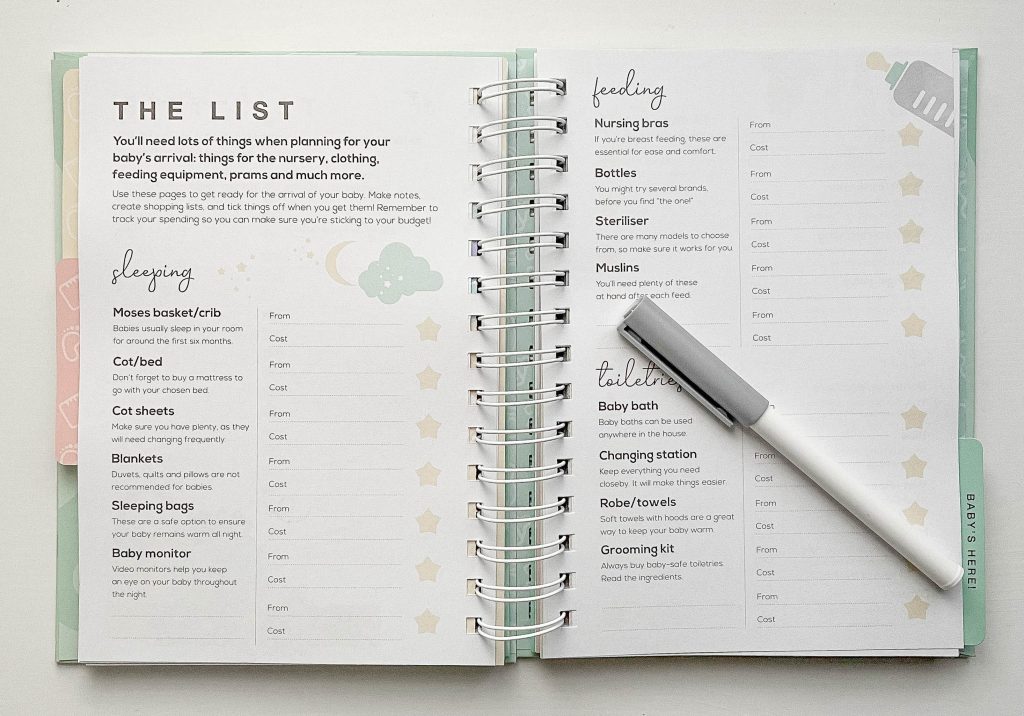 THE LIST
You'll need lots of things when planning for your
baby's arrival: things for the nursery, clothing,
feeding equipment, prams and much more.
Use these pages to get ready for the arrival of your baby. Make notes,
create shopping lists, and tick things off when you get them! Remember to
track your spending so you can make sure you're sticking to your budget!
sleeping
Moses basket/crib
Babies usually sleep in your room
for around the first six months.
From
Cost
Cot/bed
Don't forget to buy a mattress to
go with your chosen bed.
From
Cost
Cot sheets
Make sure you have plenty, as they
will need changing frequently.
From
Cost
Blankets
Duvets, quilts and pillows are not
recommended for babies.
From
Cost
Sleeping bags
These are a safe option to ensure
your baby remains warm all night.
From
Cost
Baby monitor
Video monitors help you keep
an eye on your baby throughout
the night.
From
Cost
From
Cost
feeding
Nursing bras
If you're breast feeding, these are
essential for ease and comfort.
From
Cost
Bottles
You might try several brands,
before you find "the one!"
From
Cost
Steriliser
There are many models to choose
from, so make sure it works for you.
From
Cost
Muslins
You'll need plenty of these
at hand after each feed.
From
Cost
From
Cost
toiletries
Baby bath
Baby baths can be used
anywhere in the house.
Changing station
Keep everything you need
closeby. It will make things easier.
From
Cost
Robe/towels
Soft towels with hoods are a great
way to keep your baby warm.
From
Cost
Grooming kit
Always buy baby-safe toiletries.
Read the ingredients.
From
Cost
From
Cost
BABY'S HERE!